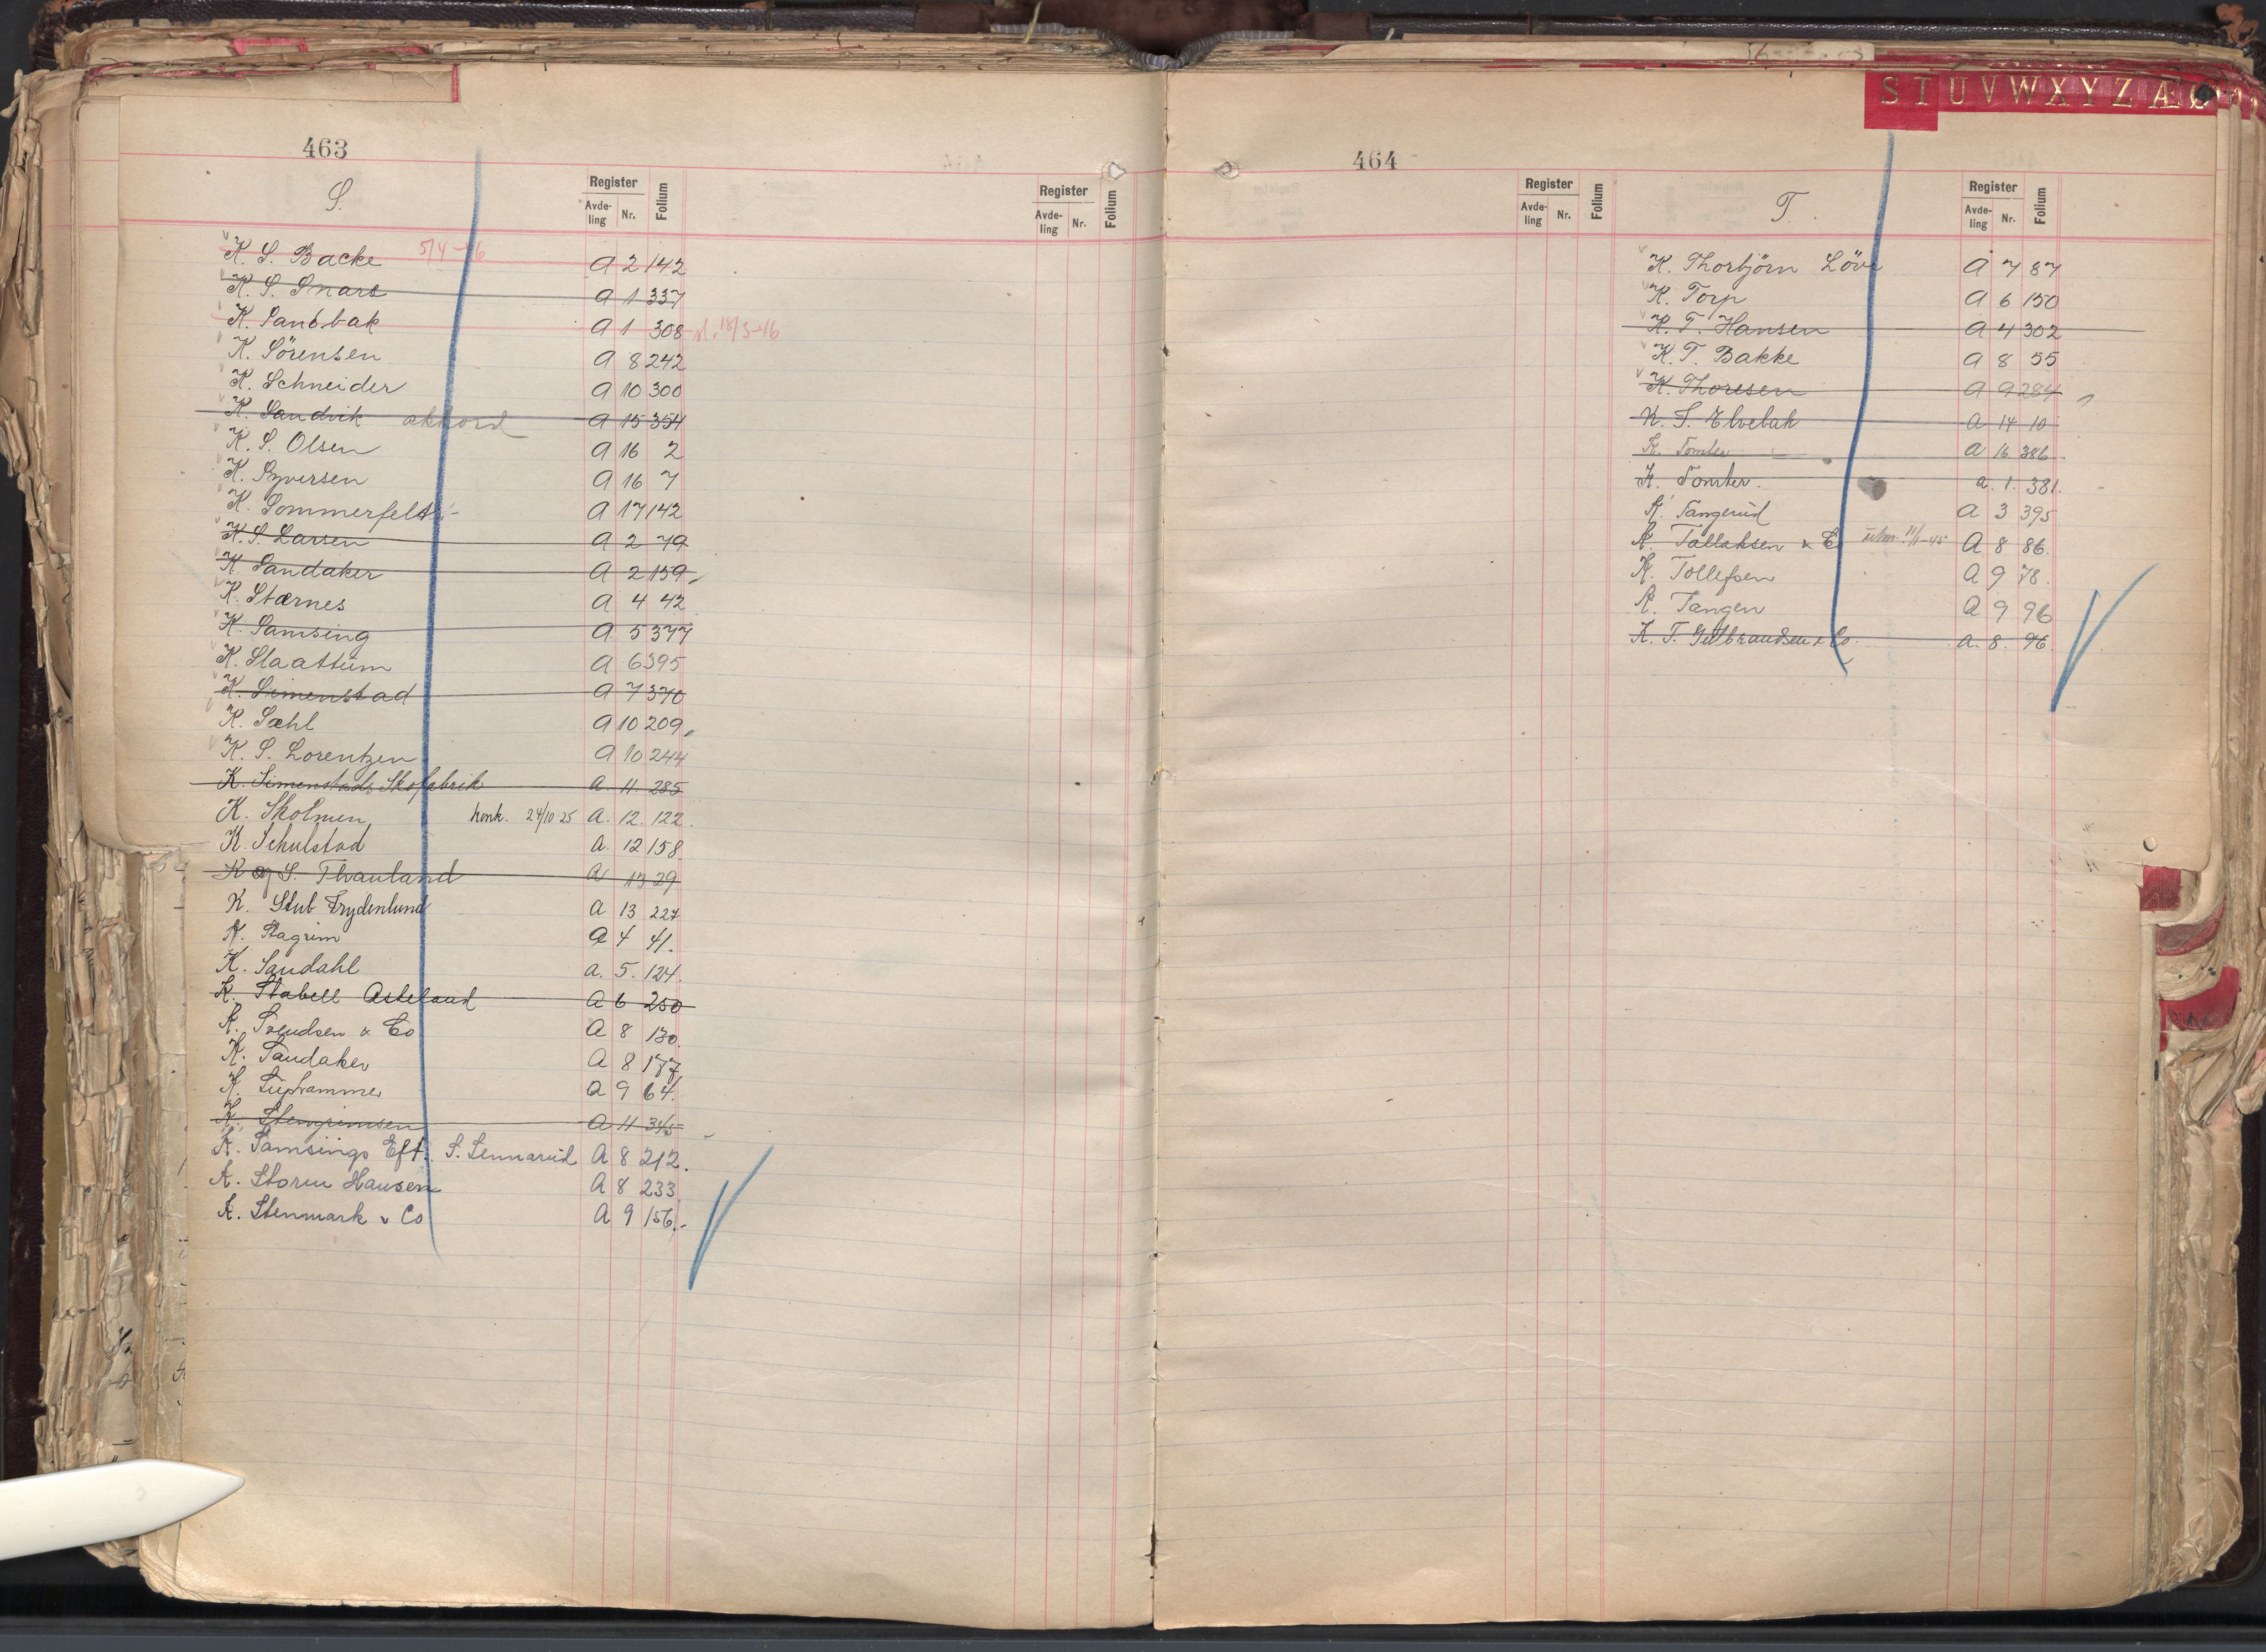 463
S.
Register Folium
Avde-ling Nr.
Register Folium
Avde-ling Nr.
K. S. Backe 5/4-46 A 2 142
K. S. Snare A 1 337
K. Sandbak A 1 308 sl. 18/3-46
K. Sörensen A 8 242
K. Schneider A 10 300
K. Sandvik akkord A 15 354
K. S. Olsen A 16 2
K. Syversen A 16 7
K. Sommerfeldt A 17 142
K. S. Larsen A 2 79
K. Sandaker A 2 159
K. Stærnes A 4 42
K. Samsing A 5 377
K. Slaattum A 6 395
K. Simenstad A 7 370
K. Sæhl A 10 209
K. S. Lorentzen A 10 244
K. Simenstads Skofabrik A 11 285
K. Skolmen konk. 24/10 25 A. 12. 122
K. Schulstad A. 12 158
K og S. Thauland A 13 29
K. Stub Frydenlund A 13 227
K. Stagrim A 4 41.
K. Sandahl A. 5. 124.
K. Stabell A 6 250
K. Svendsen & Co A 8 130
K. Sandaker A 8 177
K. A 9 64.
K. Stengrimsen A 11 345
K. Samsings Eft. S. Lennarud A 8 212.
K. Storm Hansen A 8 233
K. Stenmark & Co A 9 156.
464
S T U V W X Y Z Æ Ø
Register Folium
Avde-ling Nr.
T.
Register Folium
Avde-ling Nr.
K. Thorbjörn Löve A 7 87
K. Torp A 6 150
K. T. Hansen A 4 302
K. T. Bakke A 8 55
K. Thoresen A 9 284
K. T. Elvebak A 14 10
K. Tomter A 16 386
K. Tomter. a. 1. 381.
K. Tangerud A 3 395
K. Tallaksen & Co 11/1-45 A 8 86.
K. Tollefsen A 9 78.
K. Tangen A 9 96
K. T. Gulbrandsen & Co. A. 8. 96